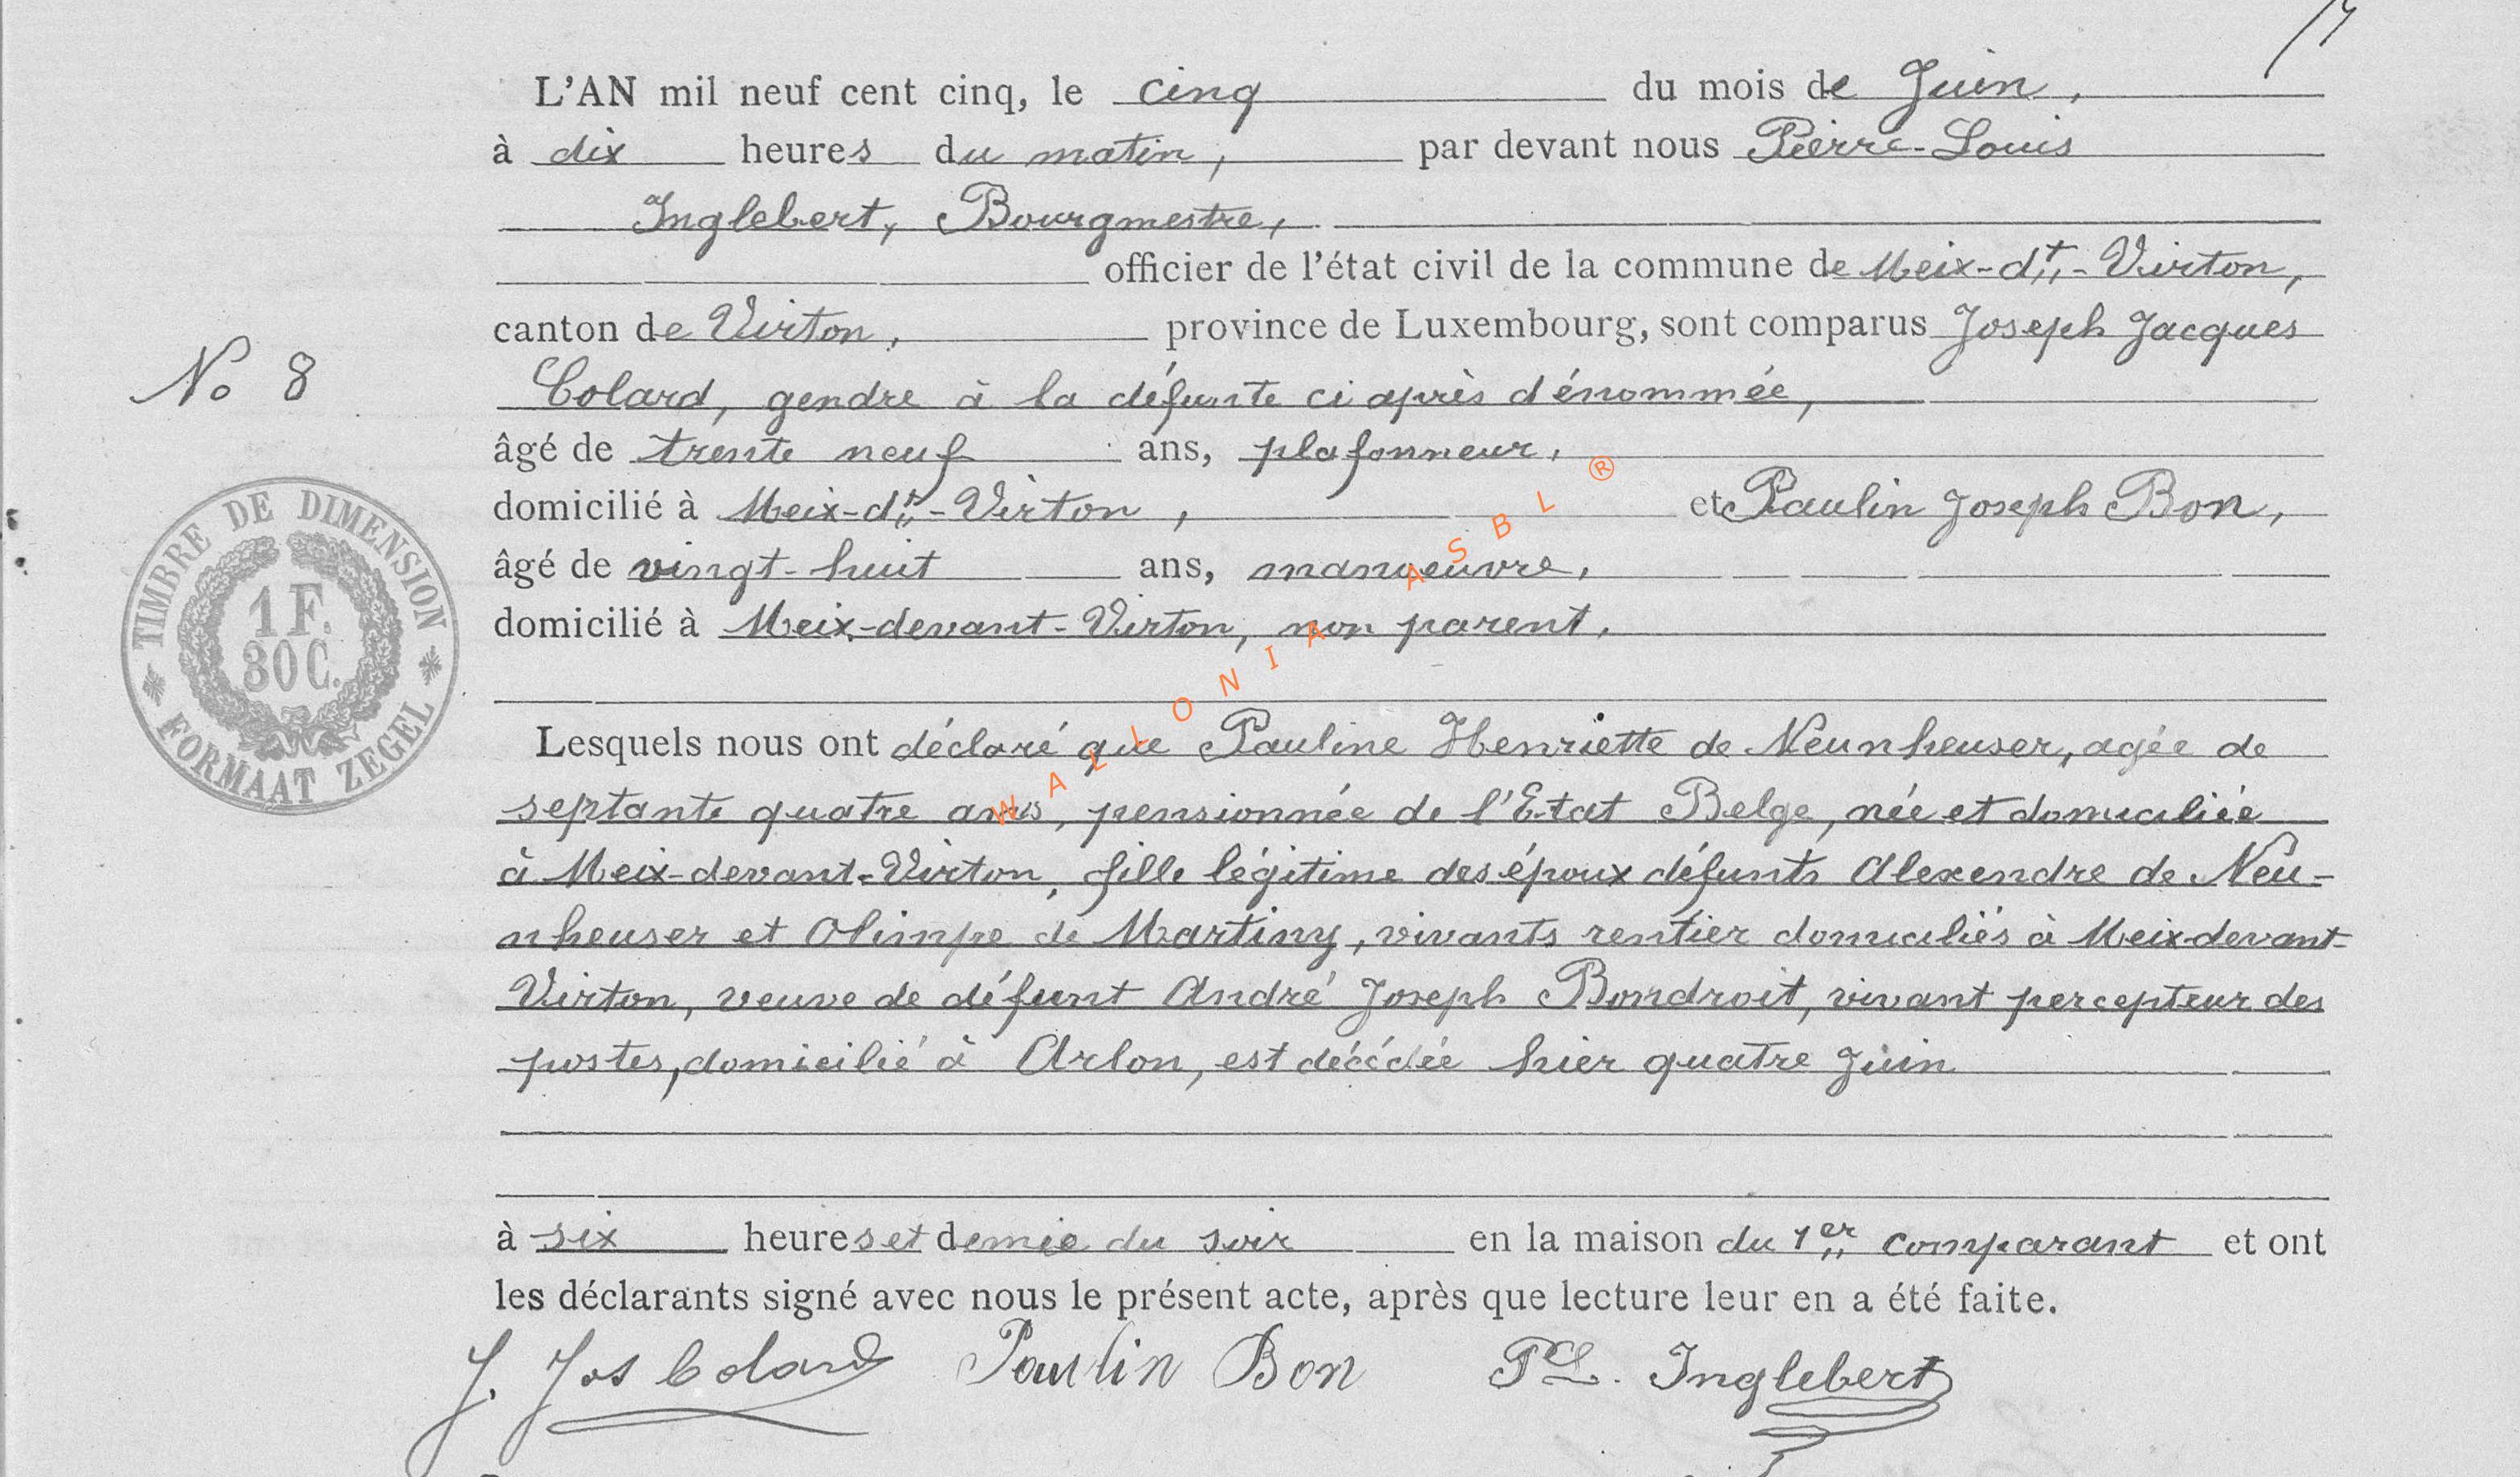 L'AN mil neuf cent cinq, le cinq du mois de Juin,
à dix heures du matin, par devant nous Pierre-Louis
Inglebert, Bourgmestre,
officier de l'état civil de la commune de Meix-dt-Virton,
canton de Virton, province de Luxembourg, sont comparus Joseph Jacques
No 8
Colard, gendre à la défunte ci après dénommée,
âgé de trente neuf ans, plafonneur,
domicilié à Meix-dt-Virton, et Paulin Joseph Bon,
âgé de vingt-huit ans, manoeuvre,
domicilié à Meix-devant-Virton, non parent.
TIMBRE DE DIMENSION
1 F.
30 C.
FORMAAT ZEGEL
WALLONIA ASBL ®
Lesquels nous ont déclaré que Pauline Henriette de Neunheuser, agée de
septante quatre ans, pensionnée de l'Etat Belge, née et domiciliée
à Meix-devant-Virton, fille légitime des époux défunts Alexendre de Neu-
nheuser et Olimpe de Martiny, vivants rentier domiciliés à Meix-devant-
Virton, veuve de défunt André Joseph Bondroit, vivant percepteur des
postes, domicilié à Arlon, est décédée hier quatre Juin
à six heures et demie du soir en la maison du 1er comparant et ont
les déclarants signé avec nous le présent acte, après que lecture leur en a été faite.
J. Jos Colard Paulin Bon PL. Inglebert